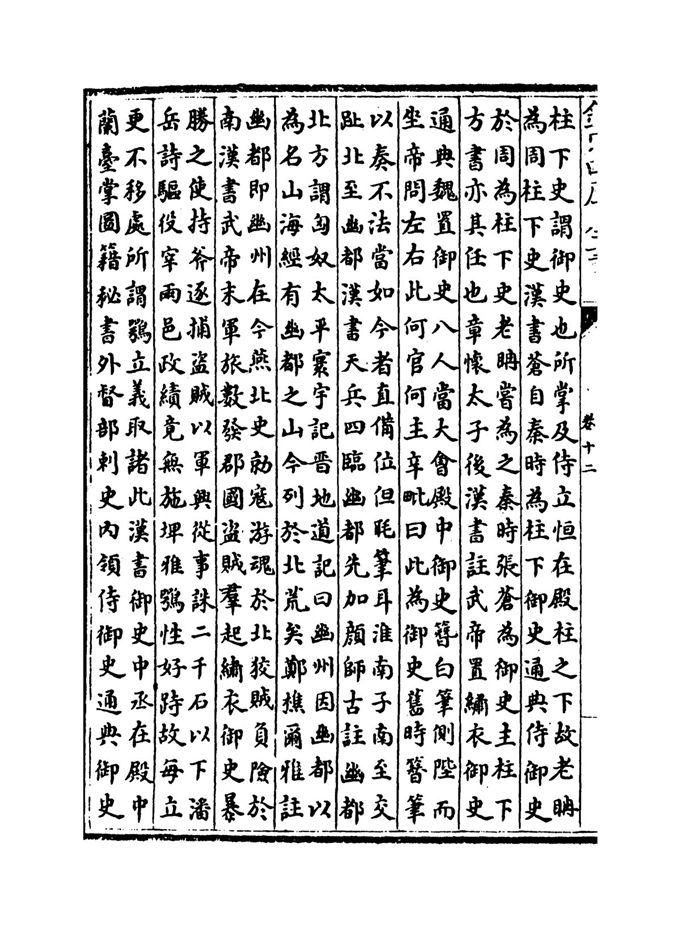 柱下史謂御史也所掌及侍立恒在殿柱之下故老聃
為周柱下史漢書蒼自秦時為柱下御史通典侍御史
於周為柱下史老聃嘗為之秦時張蒼為御史主柱下
方書亦其任也章懷太子後漢書註武帝置繡衣御史
通典魏置御史八人當大會殿中御史簪白筆側陛而
坐帝問左右此何官何主辛毗曰此為御史舊時簪筆
以奏不法當如今者直備位但毦筆耳淮南子南至交
趾北至幽都漢書天兵四臨幽都先加顏師古註幽都
北方謂匈奴太平寰宇記晋地道記曰幽州因幽都以
為名山海經有幽都之山今列於北荒矣鄭樵爾雅註
幽都即幽州在今燕北史勍寇游魂於北狡賊負險於
南漢書武帝末軍旅數發郡國盜賊羣起繡衣御史暴
勝之使持斧逐捕盜賊以軍興從事誅二千石以下潘
岳詩驅役宰兩邑政績竟無施埤雅鶚性好跱故每立
更不移處所謂鶚立義取諸此漢書御史中丞在殿中
蘭臺掌圖籍秘書外督部刺史內領侍御史通典御史
卷十二